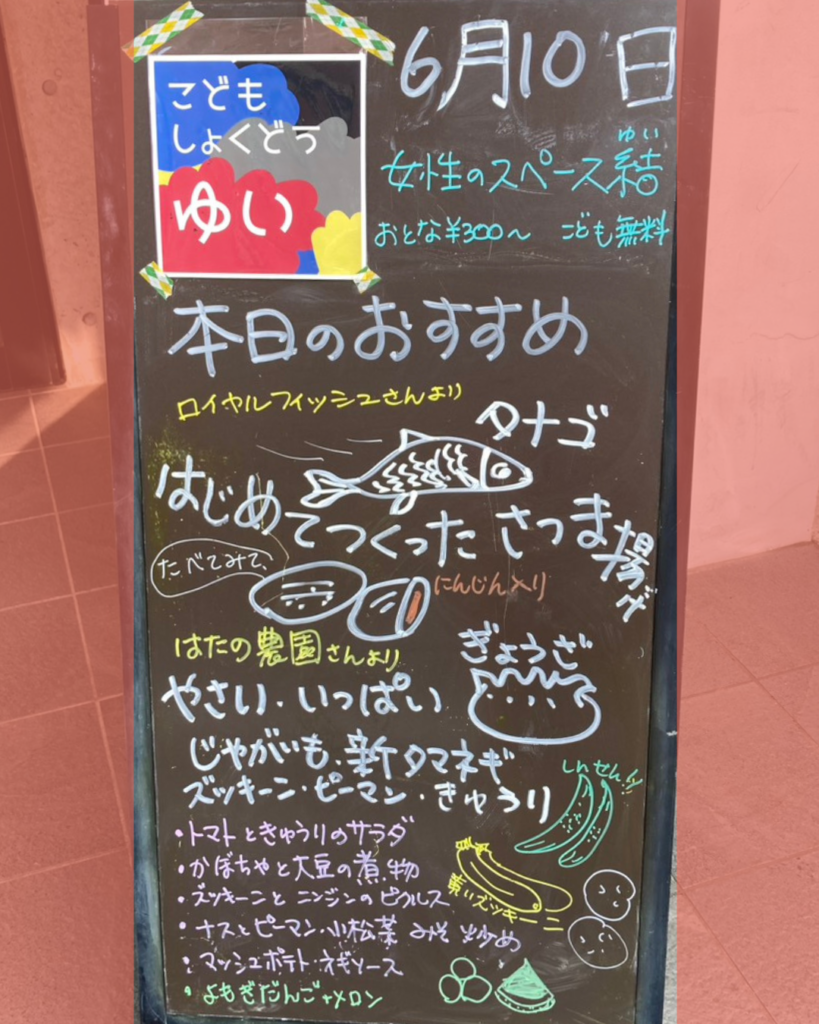 こども
しょくどう
ゆい
6月10日
ゆい
女性のスペース結
おとな¥300〜 こども無料
本日のおすすめ
ロイヤルフィッシュさんより
タナゴ
はじめてつくった さつま揚げ
たべてみて、
にんじん入り
はたの農園さんより
ぎょうざ
やさい・いっぱい
じゃがいも・新タマネギ
ズッキーン・ピーマン・きゅうり
しんせん!!
・トマトときゅうりのサラダ
・かぼちゃと大豆の煮物
・ズッキーニとニンジンのピクルス
黄いズッキーニ
・ナスとピーマン・小松菜 みそ炒め
・マッシュポテト・ネギソース
・よもぎだんご+メロン